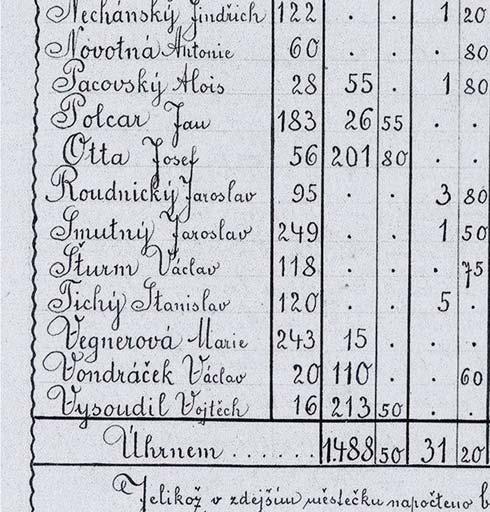 Nechánský Jindřich 122 . . 1 20
Novotná Antonie 60 . . . 80
Pacovský Alois 28 55 . 1 80
Polcar Jan 183 26 55 . .
Otta Josef 56 201 80 . .
Roudnický Jaroslav 95 . . 3 80
Smutný Jaroslav 249 . . 1 50
Šturm Václav 118 . . . 75
Tichý Stanislav 120 . . 5 .
Vegnerová Marie 243 15 . . .
Vondráček Václav 20 110 . . 60
Vysoudil Vojtěch 16 213 50 . .
Úhrnem ...... 1488 50 31 20
Jelikož v zdejším městečku napočteno